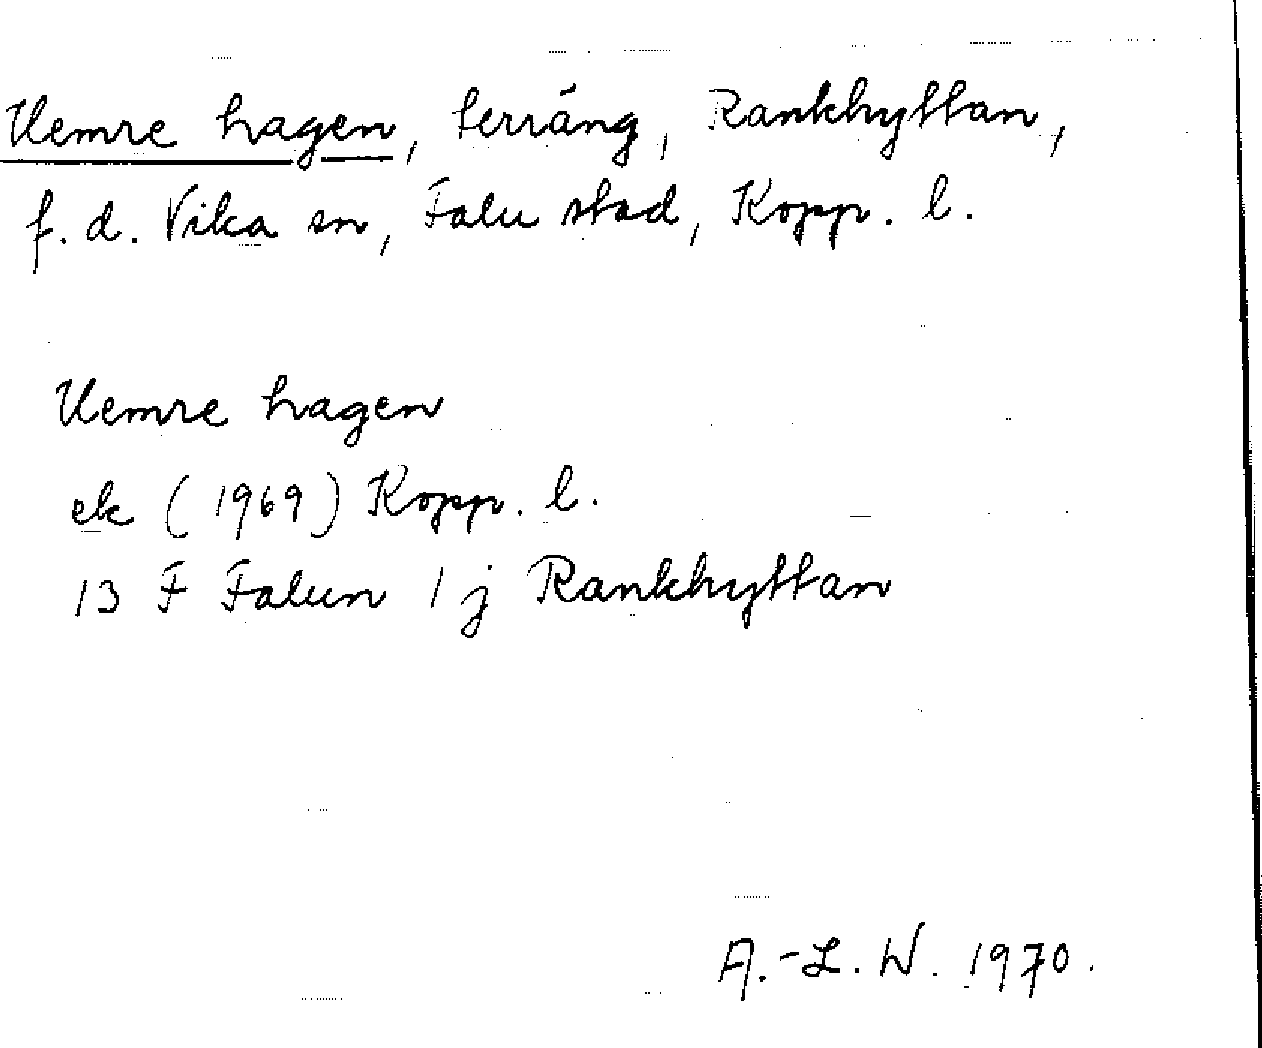 Uemre hagen, terräng, Rankhyttan,
f. d. Vika sn, Falu stad, Kopp. l.
Uemre hagen
ek (1969) Kopp. l.
13 F Falun 1 j Rankhyttan
A.-L. W. 1970.